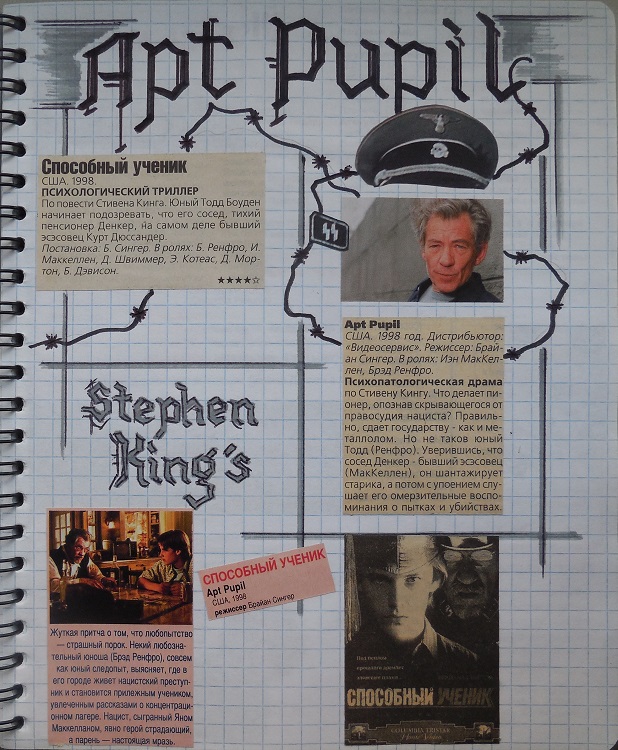 Apt Pupil
Способный ученик
США. 1998.
ПСИХОЛОГИЧЕСКИЙ ТРИЛЛЕР
По повести Стивена Кинга. Юный Тодд Боуден
начинает подозревать, что его сосед, тихий
пенсионер Денкер, на самом деле бывший
эсэсовец Курт Дюссандер.
Постановка: Б. Сингер. В ролях: Б. Ренфро, И.
Маккеллен, Д. Швиммер, Э. Котеас, Д. Мор-
тон, Б. Дэвисон.
★★★★☆
Apt Pupil
США. 1998 год. Дистрибьютор:
«Видеосервис». Режиссер: Брай-
ан Сингер. В ролях: Иэн МакКел-
лен, Брэд Ренфро.
Психопатологическая драма
по Стивену Кингу. Что делает пи-
онер, опознав скрывающегося от
правосудия нациста? Правиль-
но, сдает государству - как и ме-
таллолом. Но не таков юный
Тодд (Ренфро). Уверившись, что
сосед Денкер - бывший эсэсовец
(МакКеллен), он шантажирует
старика, а потом с упоением слу-
шает его омерзительные воспо-
минания о пытках и убийствах.
Stephen
King's
СПОСОБНЫЙ УЧЕНИК
Apt Pupil
США, 1998
режиссер Брайан Сингер
Жуткая притча о том, что любопытство
— страшный порок. Некий любозна-
тельный юноша (Брэд Ренфро), совсем
как юный следопыт, выясняет, где в
его городе живет нацистский преступ-
ник и становится прилежным учеником,
увлеченным рассказами о концентраци-
онном лагере. Нацист, сыгранный Яном
Маккелланом, явно герой страдающий,
а парень — настоящая мразь.
СПОСОБНЫЙ УЧЕНИК
COLUMBIA TRISTAR
Home Video